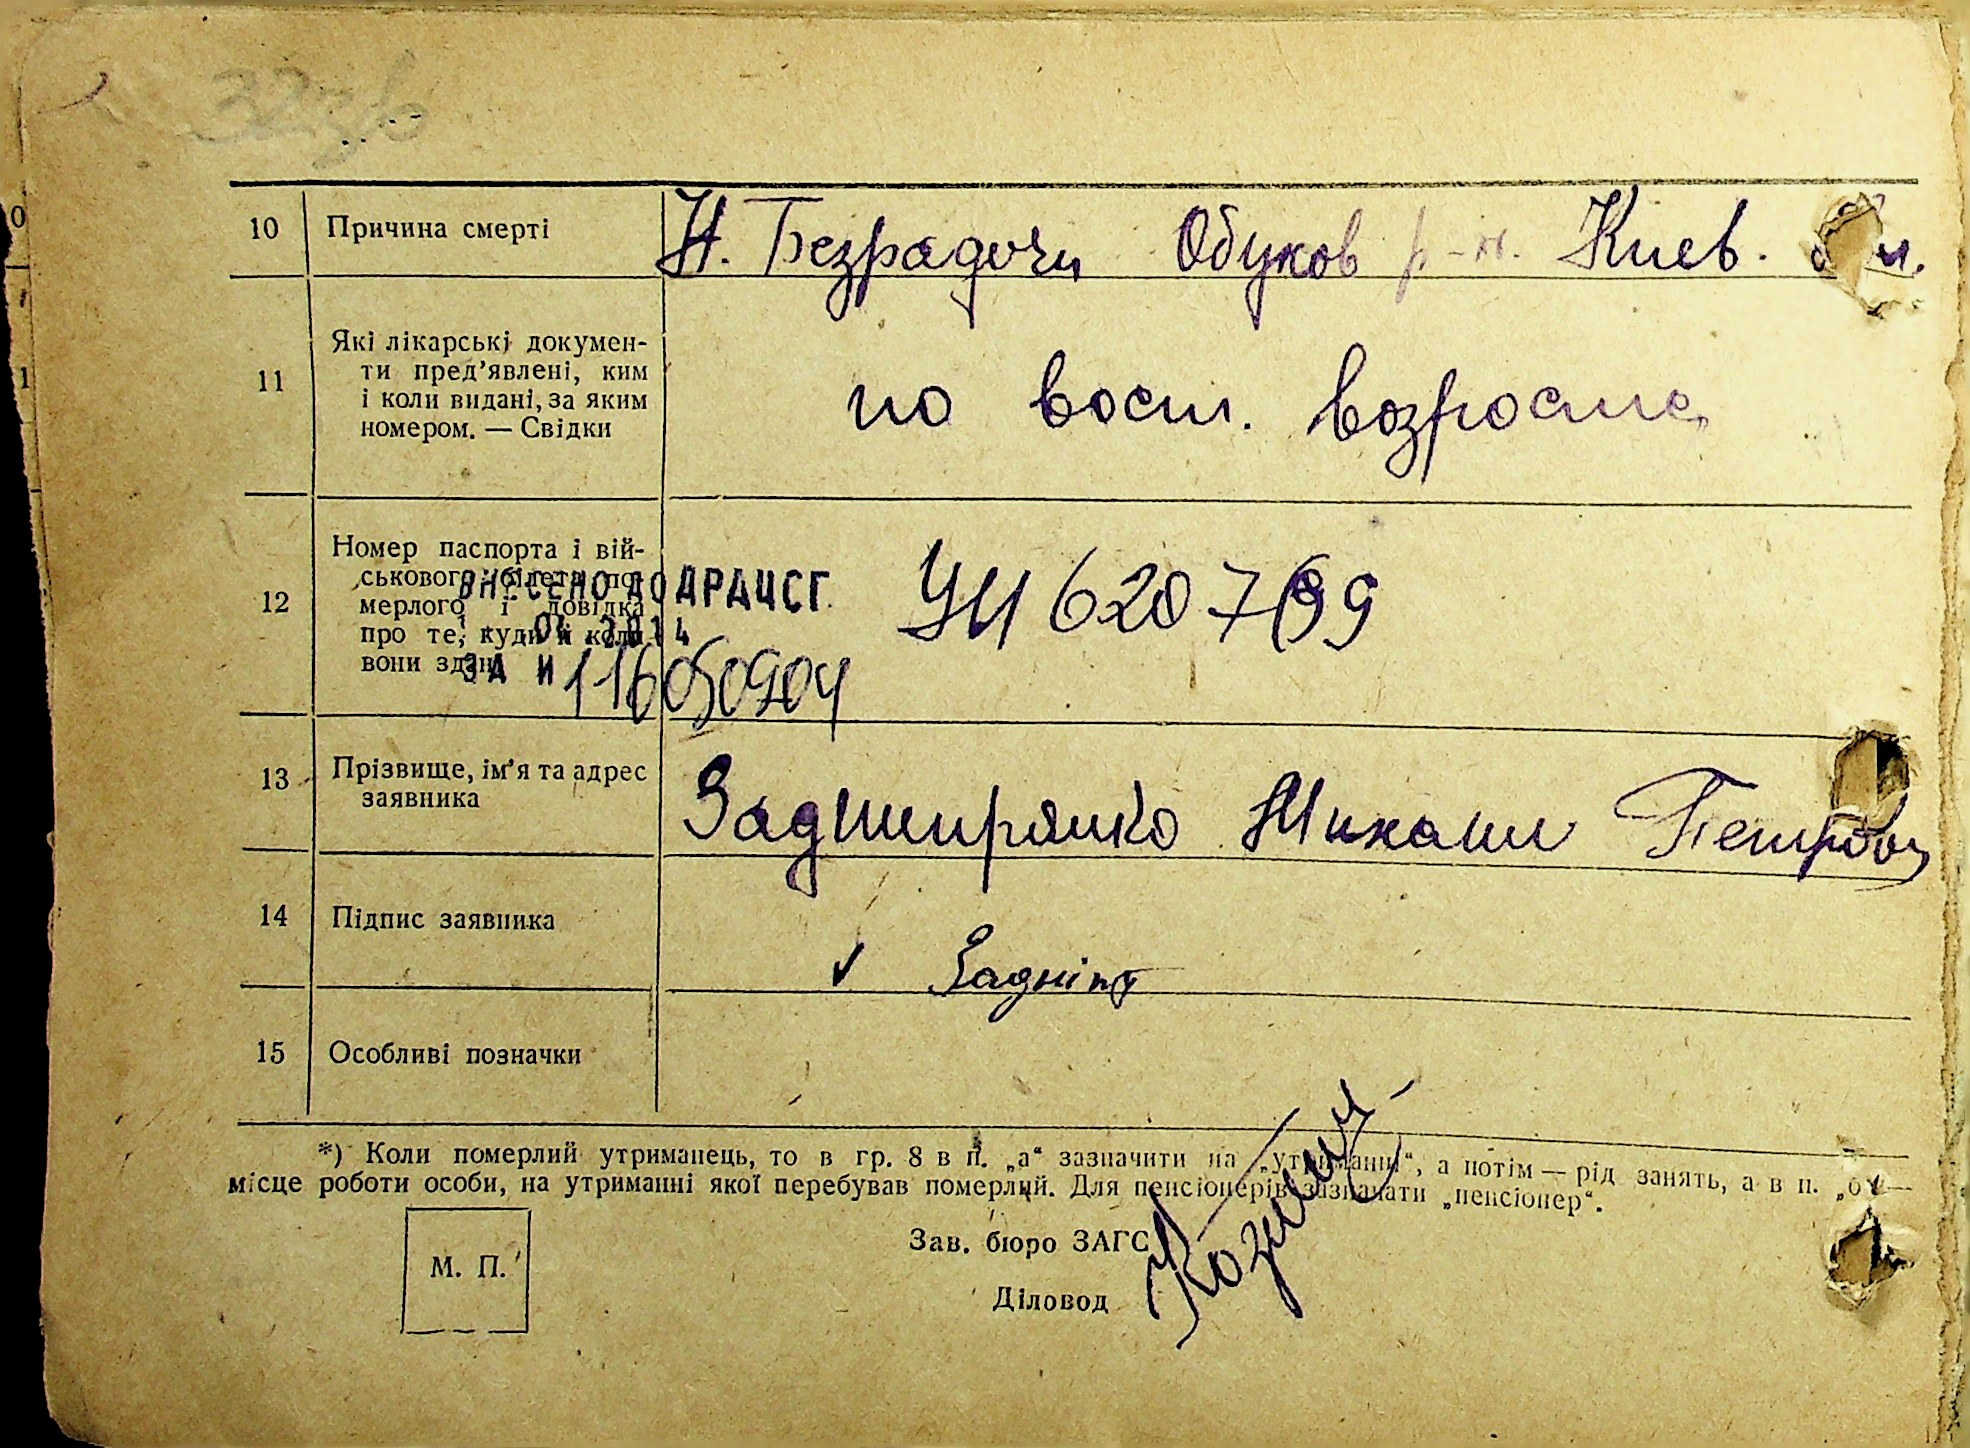 10 Причина смерті Н. Безрадичи Обухов р-н. Киев.
11 Які лікарські докумен-
ти пред’явлені, ким
і коли видані, за яким
номером. — Свідки
по восст. возраста
12 Номер паспорта і вій-
ськового білета по-
мерлого і довідка
про те, куди й коли
вони здані
ВНЕСЕНО ДО ДРАЦСГ
ЗА И 116050904
УИ 620799
13 Прізвище, ім’я та адрес
заявника
Михаил Петрович
14 Підпис заявника
15 Особливі позначки
*) Коли померлий утриманець, то в гр. 8 в п. „а“ зазначити на „утриманні“, а потім — рід занять, а в п. „б“ —
місце роботи особи, на утриманні якої перебував померлий. Для пенсіонерів зазначати „пенсіонер“.
М. П.
Зав. бюро ЗАГС
Діловод